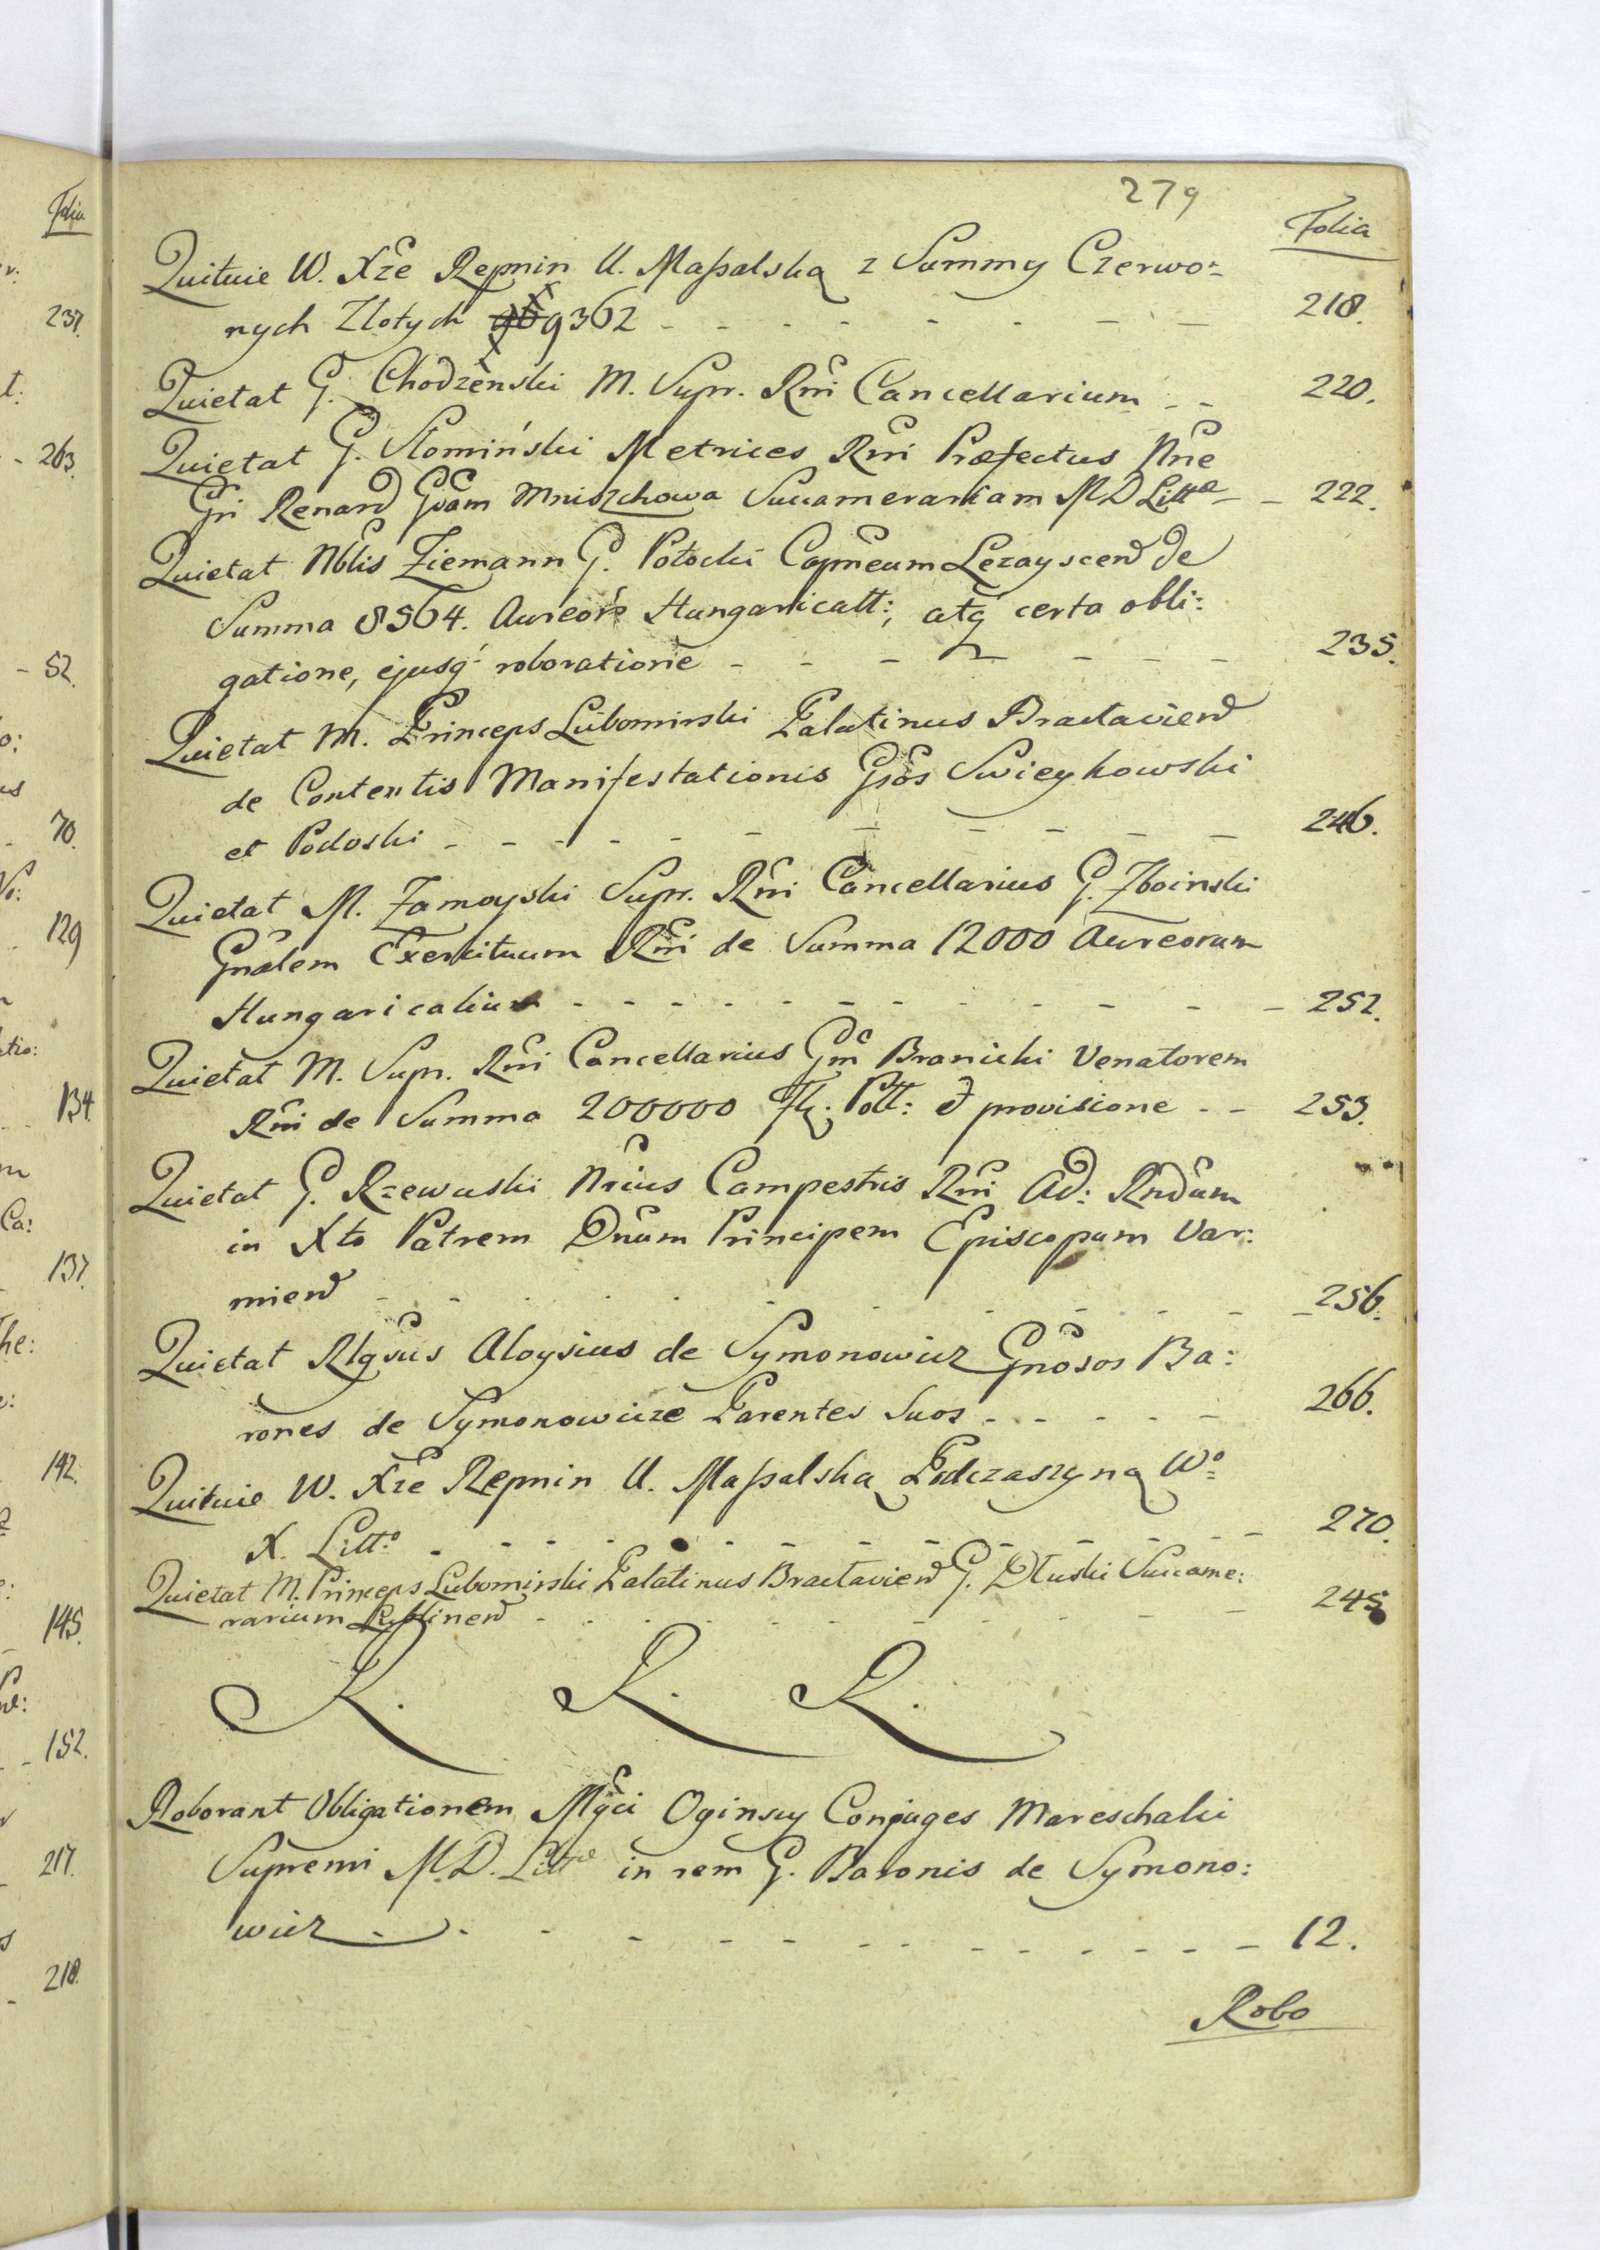 279
Folia
Quituie W. Xże Repnin U. Maßalską z Summy Czerwo=
nych Złotych 9362 - - - - - - - - 218.
Quietat G. Chodzenski M. Supr. Rni Cancellarium - - 220.
Quietat G. Słomiński Metrices Rni Præfectus Nne
Gri Renard Gsam Mniszchowa Succamerariam M D Littæ - - 222.
Quietat Nblis Ziemann G. Potocki Capneum Lezayscen de
Summa 8564. Aureor Hungaricall:, atq certa obli:
gatione, ejusq roboratione - - - - - - - 235.
Quietat M. Princeps Lubomirski Palatinus Braclavien
de Contentis Manifestationis Gsos Swieykowski
et Podoski - - - - - - - - - - - 246.
Quietat M. Zamoyski Supr. Rni Cancellarius G. Zboinski
Gnalem Exercituum Rni de Summa 12000 Aureorum
Hungaricaliu - - - - - - - - - - - - 252.
Quietat M. Supr. Rni Cancellarius Gm Branicki Venatorem
Rni de Summa 200000 Fl. Poll: et provisione - - 253.
Quietat G. Rzewuski Nrius Campestris Rni Ad: Rndum
in Xto Patrem Dnum Principem Episcopum Var:
mien - - - - - - - - - - - - 256.
Quietat Rlgsus Aloysius de Symonowicz Gnosos Ba:
rones de Symonowicze Parentes Suos - - - - - 266.
Quituie W. Xże Repnin U. Maßalską Podczaszyną Wo=
X. Litto - - - - - - - - - - - - 270.
Quietat M. Princeps Lubomirski Palatinus Braclavien G. Dłuski Succame:
rarium Lublinen - - - - - - - - - - - 245
R. R. R.
Roborant Obligationem Mgci Oginscy Conjuges Mareschalci
Supremi M. D. Littæ in rem G. Baronis de Symono:
wicz - - - - - - - - - - - - 12.
Robo
Folia
237.
263.
52.
70.
129
134
137.
142.
145.
152.
217.
218.